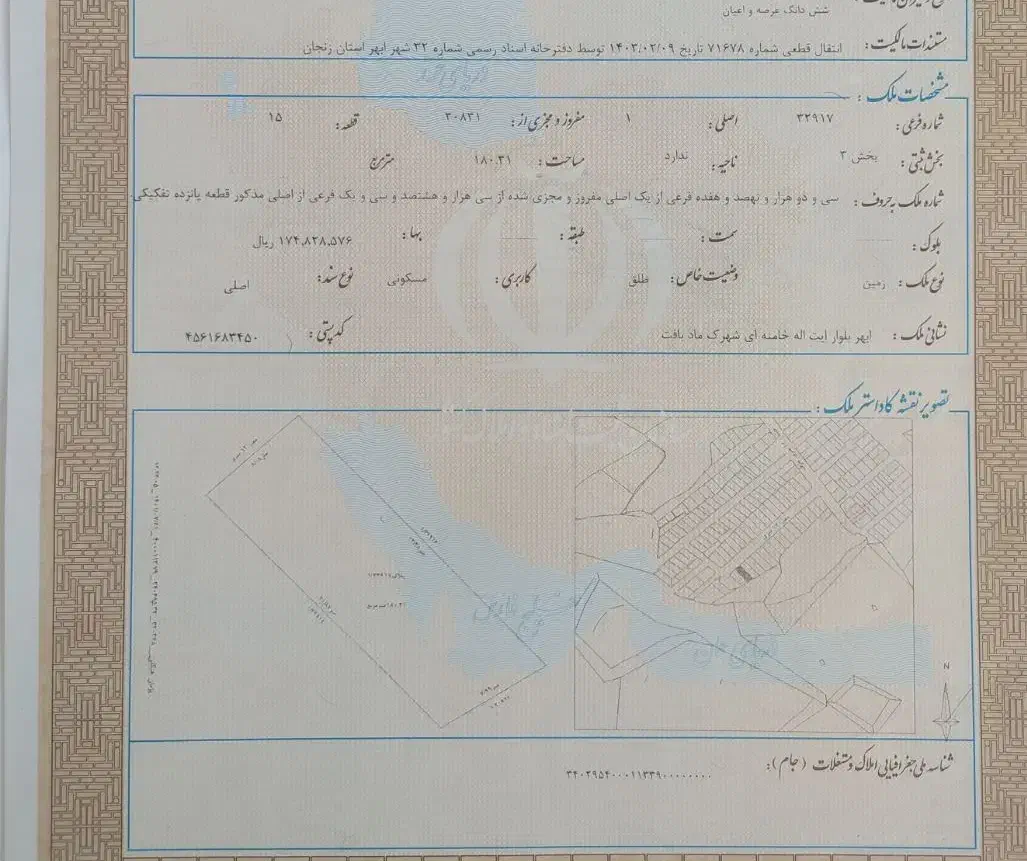 شش دانگ عرصه و اعیان
مستندات مالکیت: انتقال قطعی شماره ۷۱۶۷۸ تاریخ ۱۴۰۳/۰۲/۰۹ توسط دفترخانه اسناد رسمی شماره ۳۲ شهر ابهر استان زنجان
مشخصات ملک:
شماره فرعی: ۳۲۹۱۷ اصلی: ۱ مفروز و مجزی از: ۳۰۸۳۱ قطعه: ۱۵
بخش ثبتی: بخش ۳ ناحیه: ندارد مساحت: ۱۸۰.۳۱ مترمربع
شماره ملک به حروف: سی و دو هزار و نهصد و هفده فرعی از یک اصلی مفروز و مجزی شده از سی هزار و هشتصد و سی و یک فرعی از اصلی مذکور قطعه پانزده تفکیکی
بلوک: سمت: طبقه: بها: ۱۷۴,۸۲۸,۵۷۶ ریال
نوع ملک: زمین وضعیت خاص: طلق کاربری: مسکونی نوع سند: اصلی
نشانی ملک: ابهر بلوار ایت اله خامنه ای شهرک ماد بافت کدپستی: ۴۵۶۱۶۸۳۴۵۰
تصویر نقشه کاداستر ملک:
N
شناسه ملی جغرافیایی املاک و مستغلات (جام):